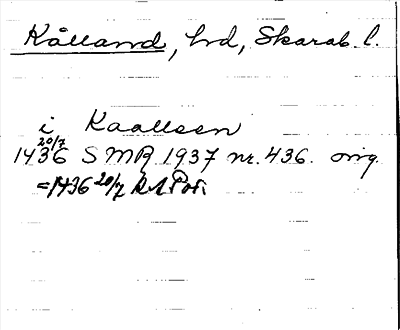 Kålland, hd, Skarab. l.
i Kaallsen
1436 20/7 SMR 1937 nr. 436. orig.
=1436 20/7 RA Pol.